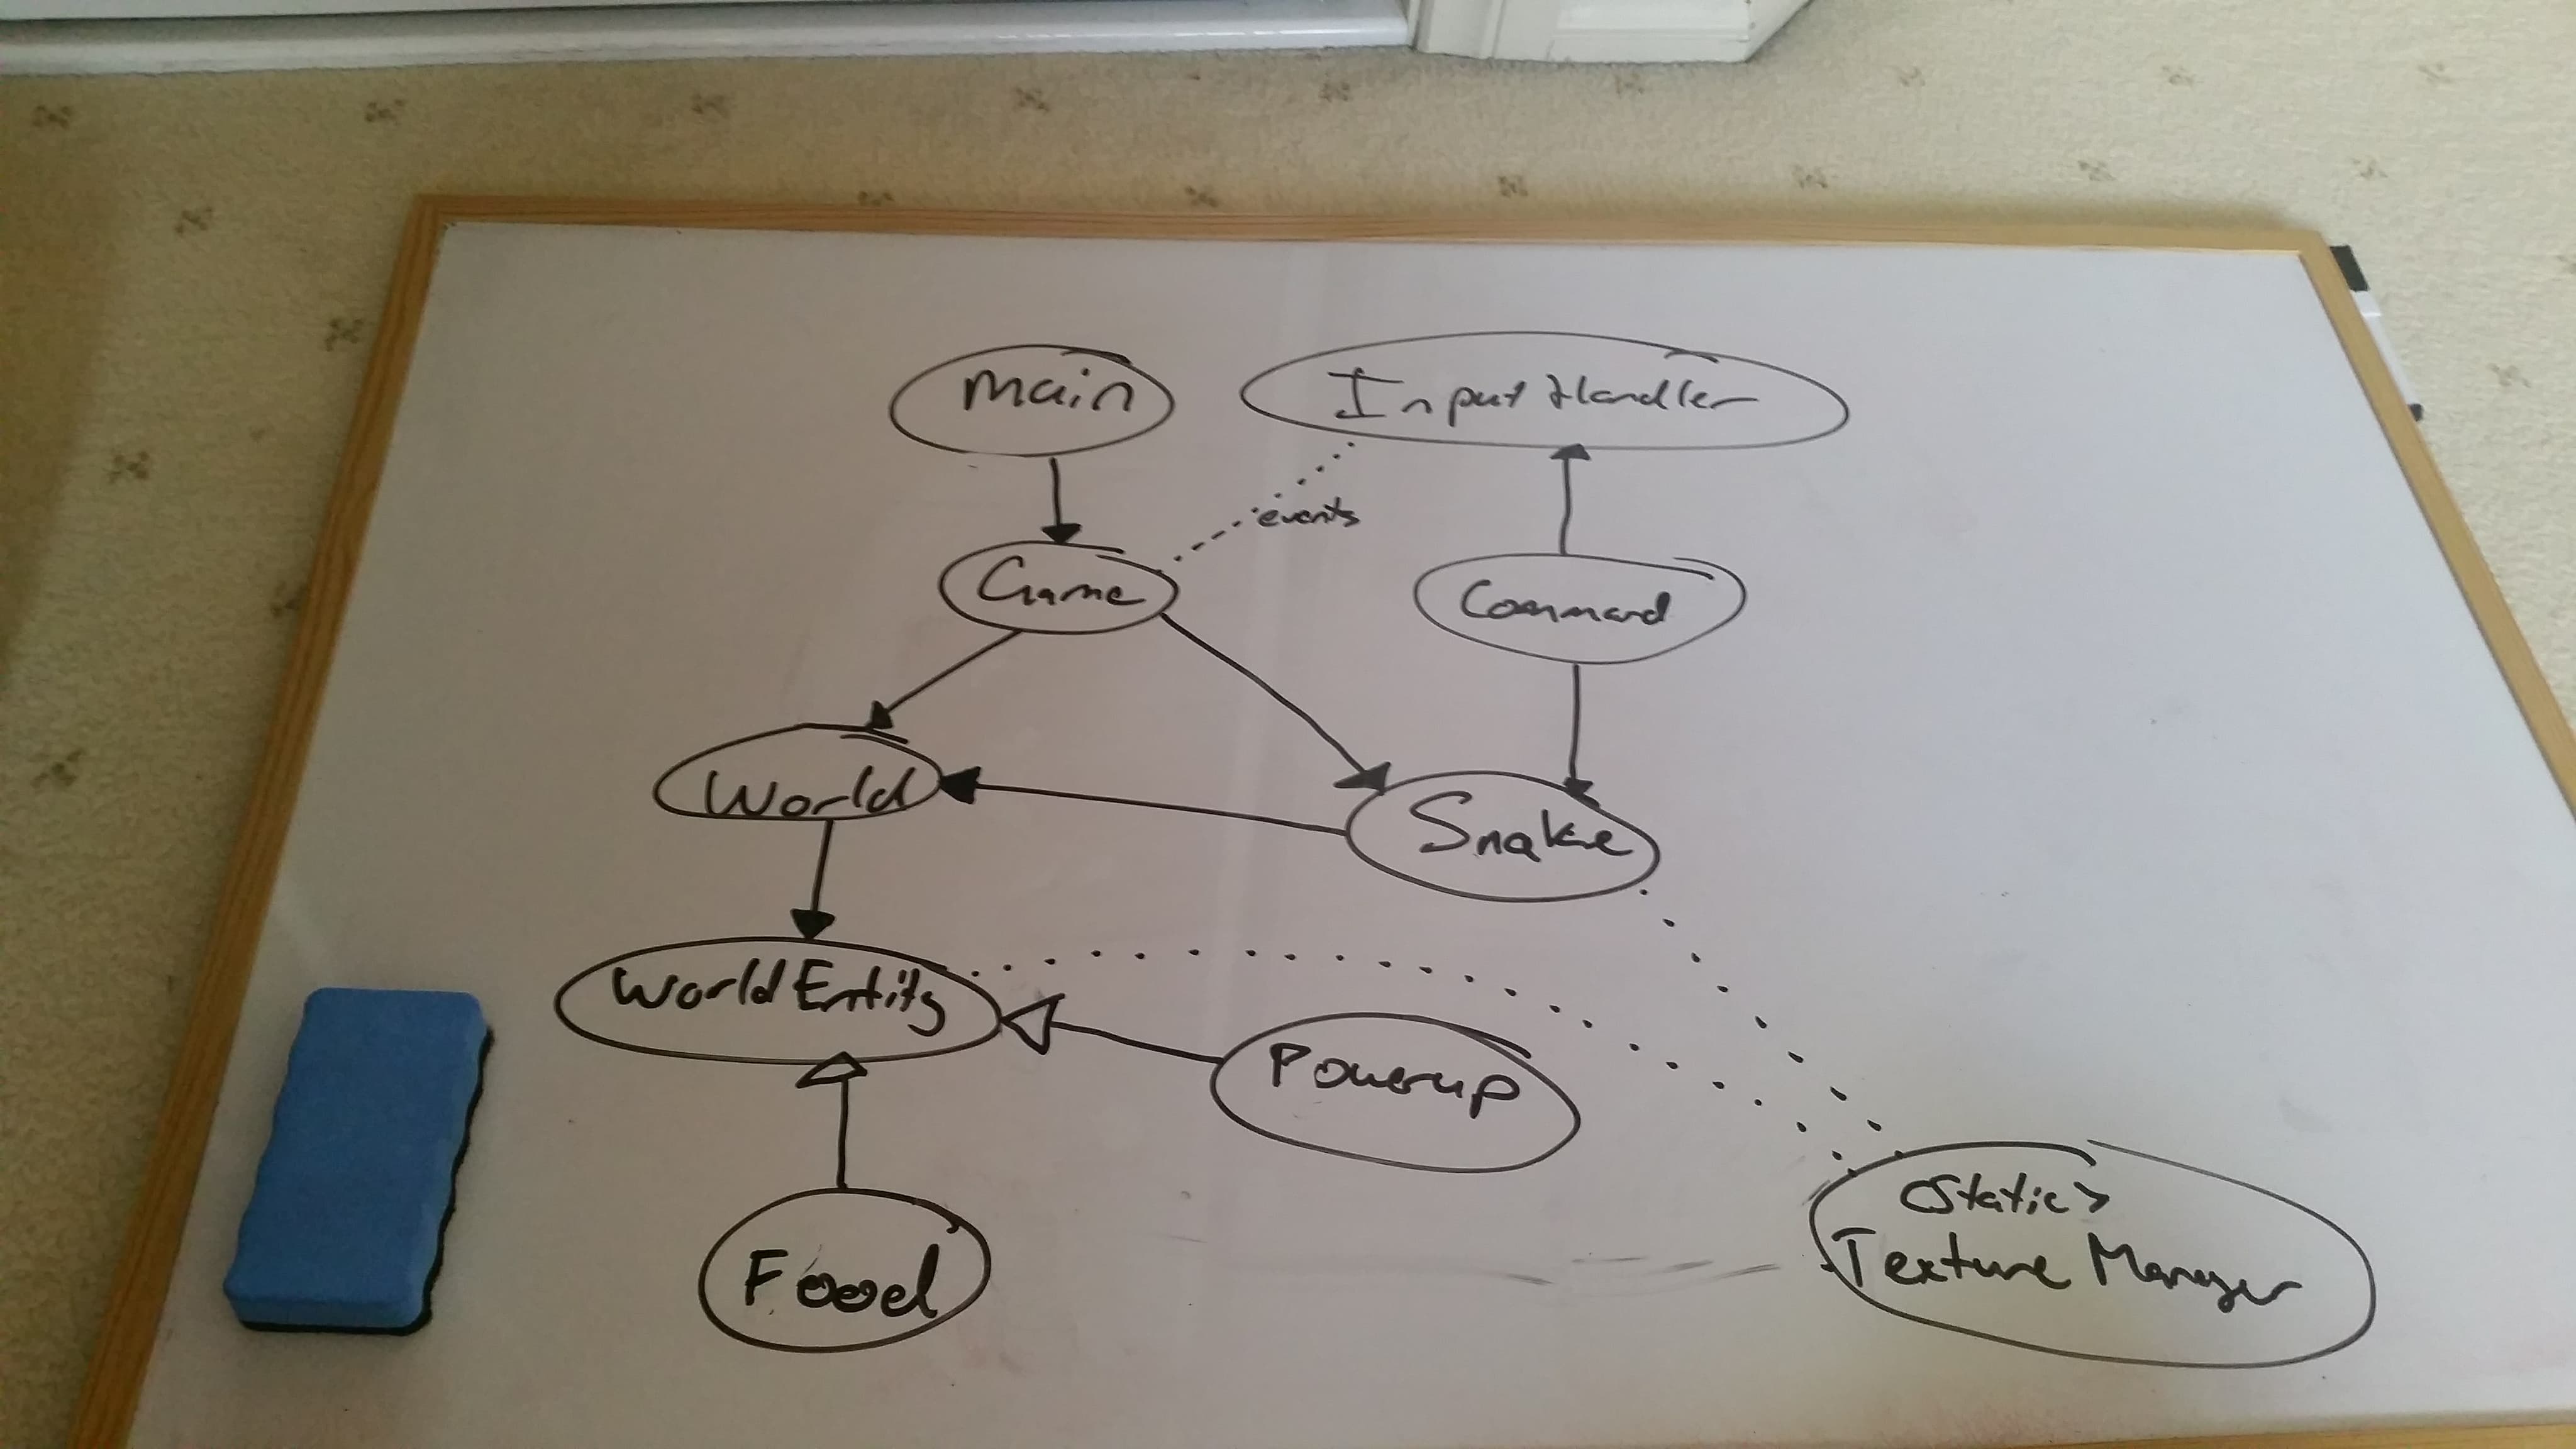 main
Input Handler
events
Game
Command
World
Snake
World Entity
Powerup
Food
<Static>
Texture Manager